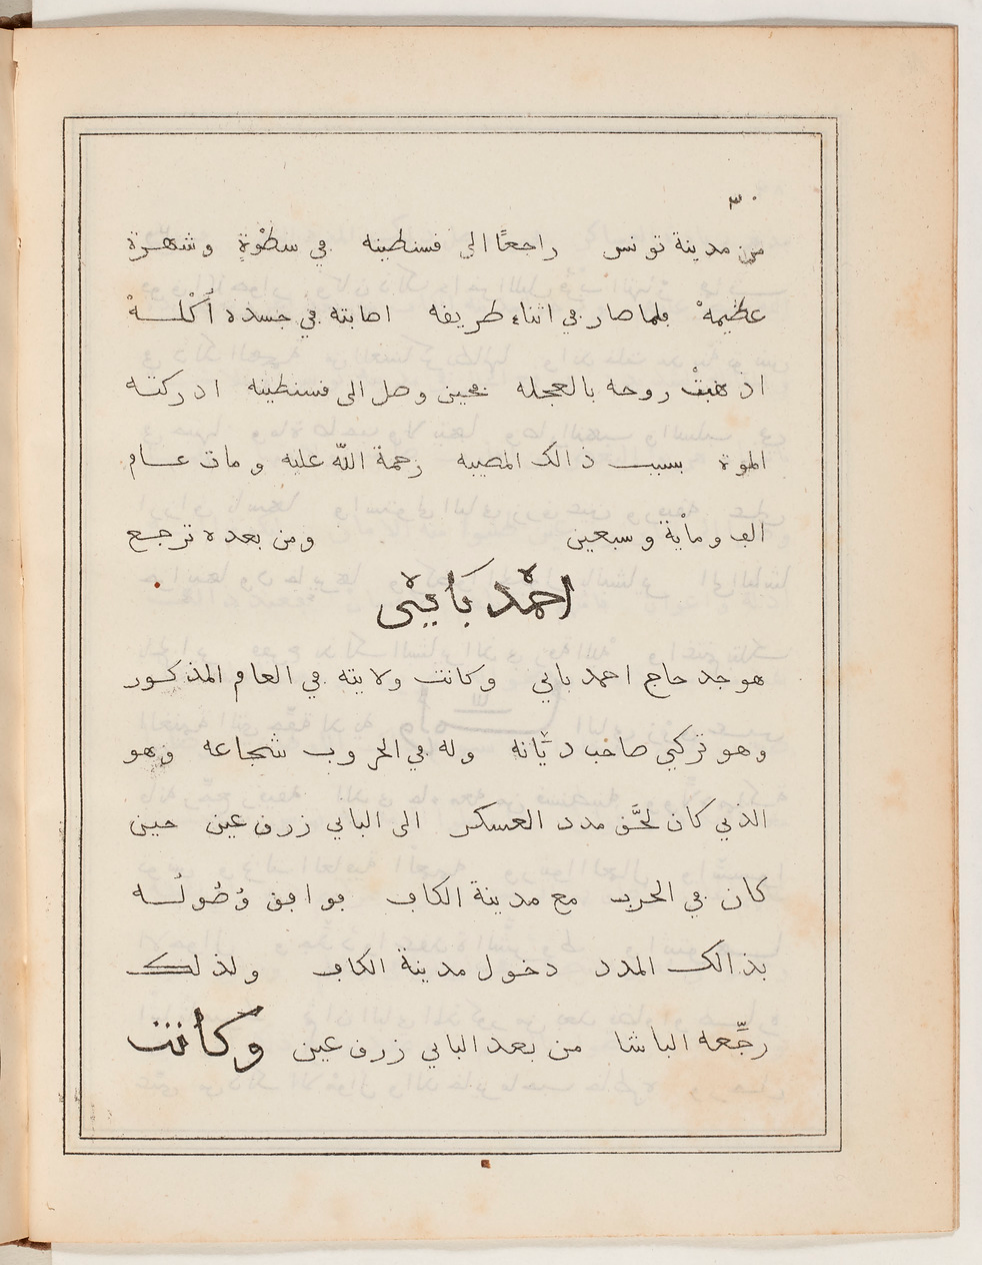 ٣٠
من مدينة تونس راجعًا الى قسنطينه في سطْوة وشهرة
عظيمهْ فلما صار في اثناء طريقه اصابته في جسده أَكْلـــهْ
اذهبتْ روحه بالعجله فحين وصل الى قسنطينه ادركته
الموة بسبب ذالك المصيبه رحمة اللّه عليه ومات عــام
الف ومأية وسبعين ومن بعده ترجـع
احمْد بَايْ
هو جد حاج احمد باي وكانت ولايته في العام المذكور
وهو تركي صاحب ديَّانه وله في الحروب شجاعه وهو
الذي كان لحَّق مدد العسكر الى الباي زرق عين حين
كان في الحرب مع مدينة الكاف فوافق وُصُولُـــه
بذالك المدد دخول مدينة الكاف ولذلك
رجَّعه الباشا من بعد الباي زرق عين وكانت